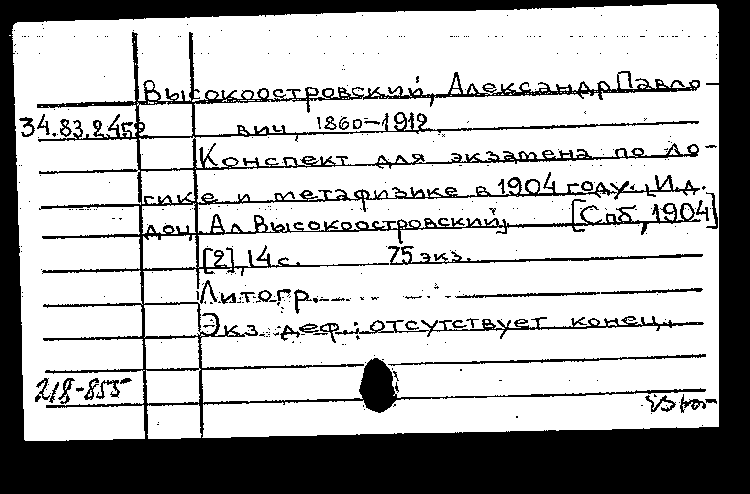 Высокоостровский, Александр Павло-
34.83.2452 вич, 1860-1912.
Конспект для экзамена по ло-
гике и метафизике в 1904 году. И.д.
доц. Ал. Высокоостровский, [Спб, 1904]
[2], 14 с. 75 экз.
Литогр.
Экз. деф.: отсутствует конец.
218-855